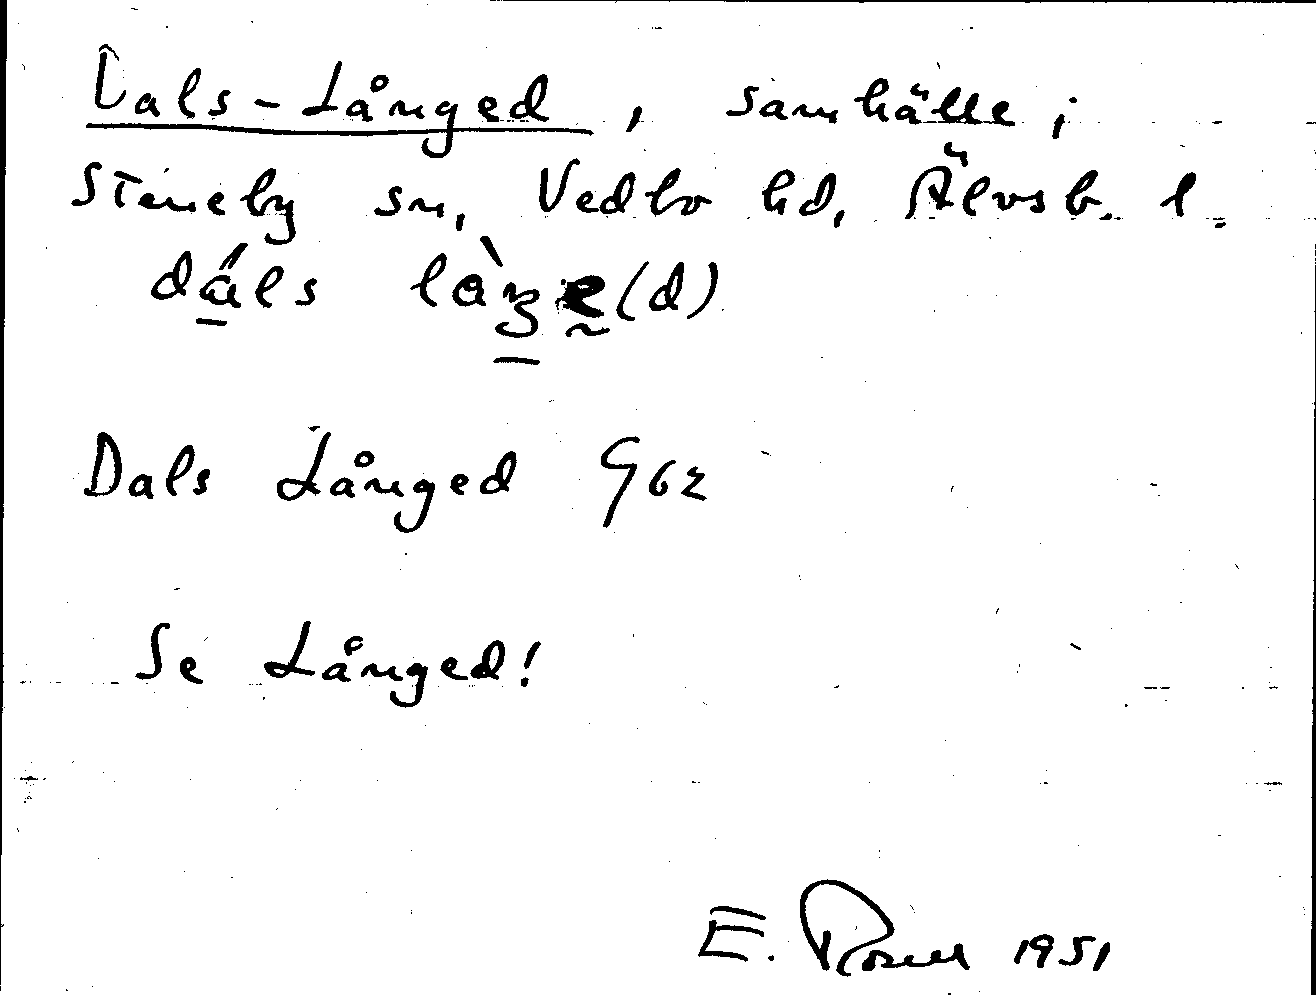 Dals-Långed, samhälle i
Steneby sn, Vedbo hd, Älvsb. l.
Dals Långed G62
Se Långed!
E. Rosell 1951